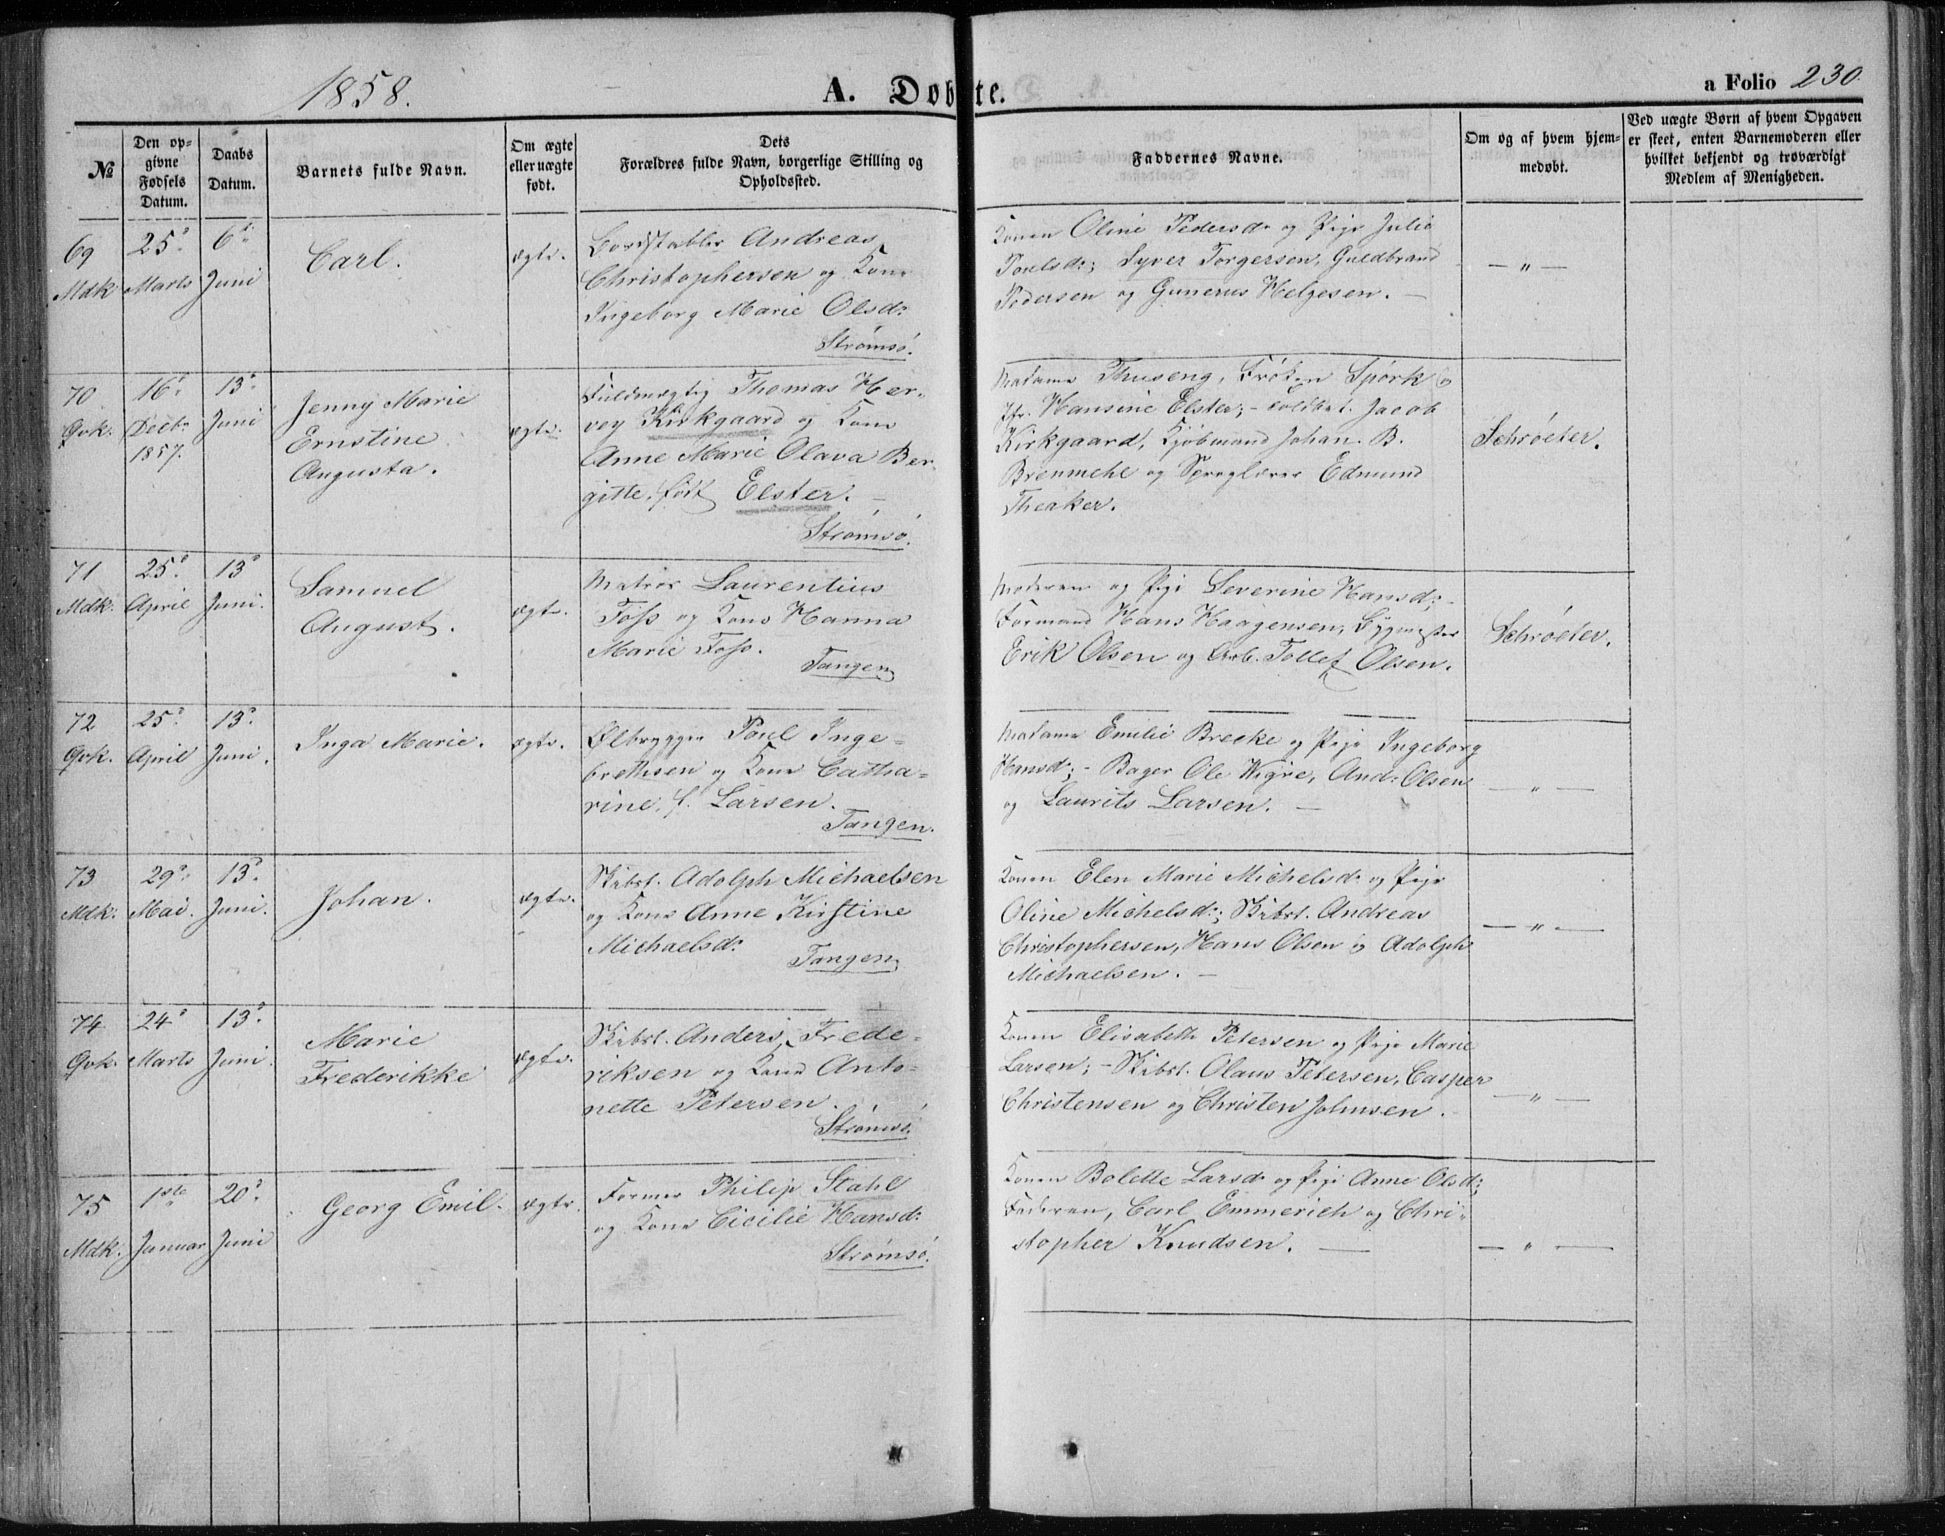 1858.
A. Døbte.
a Folio 230.
№
Den op-
givne
Fødsels
Datum.
Daabs
Datum.
Barnets fulde Navn.
Om ægte
eller uægte
født.
Dets
Forældres fulde Navn, borgerlige Stilling og
Opholdssted.
Faddernes Navne.
Om og af hvem hjem-
medøbt.
Ved uægte Børn af hvem Opgaven
er skeet, enten Barnemoderen eller
hvilket bekjendt og troværdigt
Medlem af Menigheden.
69
Mdk
25d
Marts
6te
Juni
Carl.
ægte.
Bordstabler Andreas
Christophersen og Kone
Ingeborg Marie Olsd:
Strømsø.
Konen Oline Pedersd: og Pige Julie
Poulsd:; Syver Torgersen, Guldbrand
Pedersen og Gunerus Helgesen. —
— " —
70
Qvk.
16d
Decbr
1857.
13d
Juni
Jenny Marie
Ernstine
Augusta.
ægte.
Fuldmægtig Thomas Her-
vey Kirkgaard og Kone
Anne Marie Olava Ber-
gitte, født Elster. —
Strømsø.
Madame Thuseng, Frøken Spørk og
Jfr. Hansine Elster; – Jacob
Kirkgaard, Kjøbmand Johan B.
Brenmehl og Sproglærer Edmund
Theaker.
Schrøeter.
71
Mdk.
25d
April
13d
Juni.
Samuel
August.
ægte.
Matros Laurentius
Foss og Kone Hanna
Marie Foss.
Tangen
Moderen og Pige Severine Hansd:; –
Formand Hans Haagensen, Bygmester
Erik Olsen og Arb. Tollef Olsen.
Schrøeter.
72
Qvk.
25d
April
13d
Juni.
Inga Marie.
ægte.
Ølbrygger Poul Inge-
brethsen og Kone Catha-
rine, f. Larsen.
Tangen.
Madame Emilie Brecke og Pige Ingeborg
Hansd:; – Bager Ole Wigre, And: Olsen
og Laurits Larsen. —
— " —
73
Mdk.
29d
Mai.
13d
Juni.
Johan.
ægte.
Skibst. Adolph Michaelsen
og Kone Anne Kirstine
Michaelsd:
Tangen
Konen Elen Marie Michelsd: og Pige
Oline Michelsd:; Skibst. Andreas
Christophersen, Hans Olsen og Adolph
Michaelsen. —
— " —
74
Qvk.
24d
Marts
13d
Juni.
Marie
Frederikke
ægte.
Skibst. Anders Frede-
riksen og Kone Anto-
nette Petersen.
Strømsø.
Konen Elisabeth Petersen og Pige Marie
Larsen; – Skibst. Olaus Petersen, Casper
Christensen og Christen Johnsen.
— " —
75
Mdk.
1ste
Januar
20d
Juni
Georg Emil.
ægte.
Former Philip Stahl
og Kone Cicilie Hansd:
Strømsø.
Konen Bolette Larsd: og Pige Anne Olsd:;
Faderen, Carl Emmerich og Chri-
stopher Knudsen. —
— " —